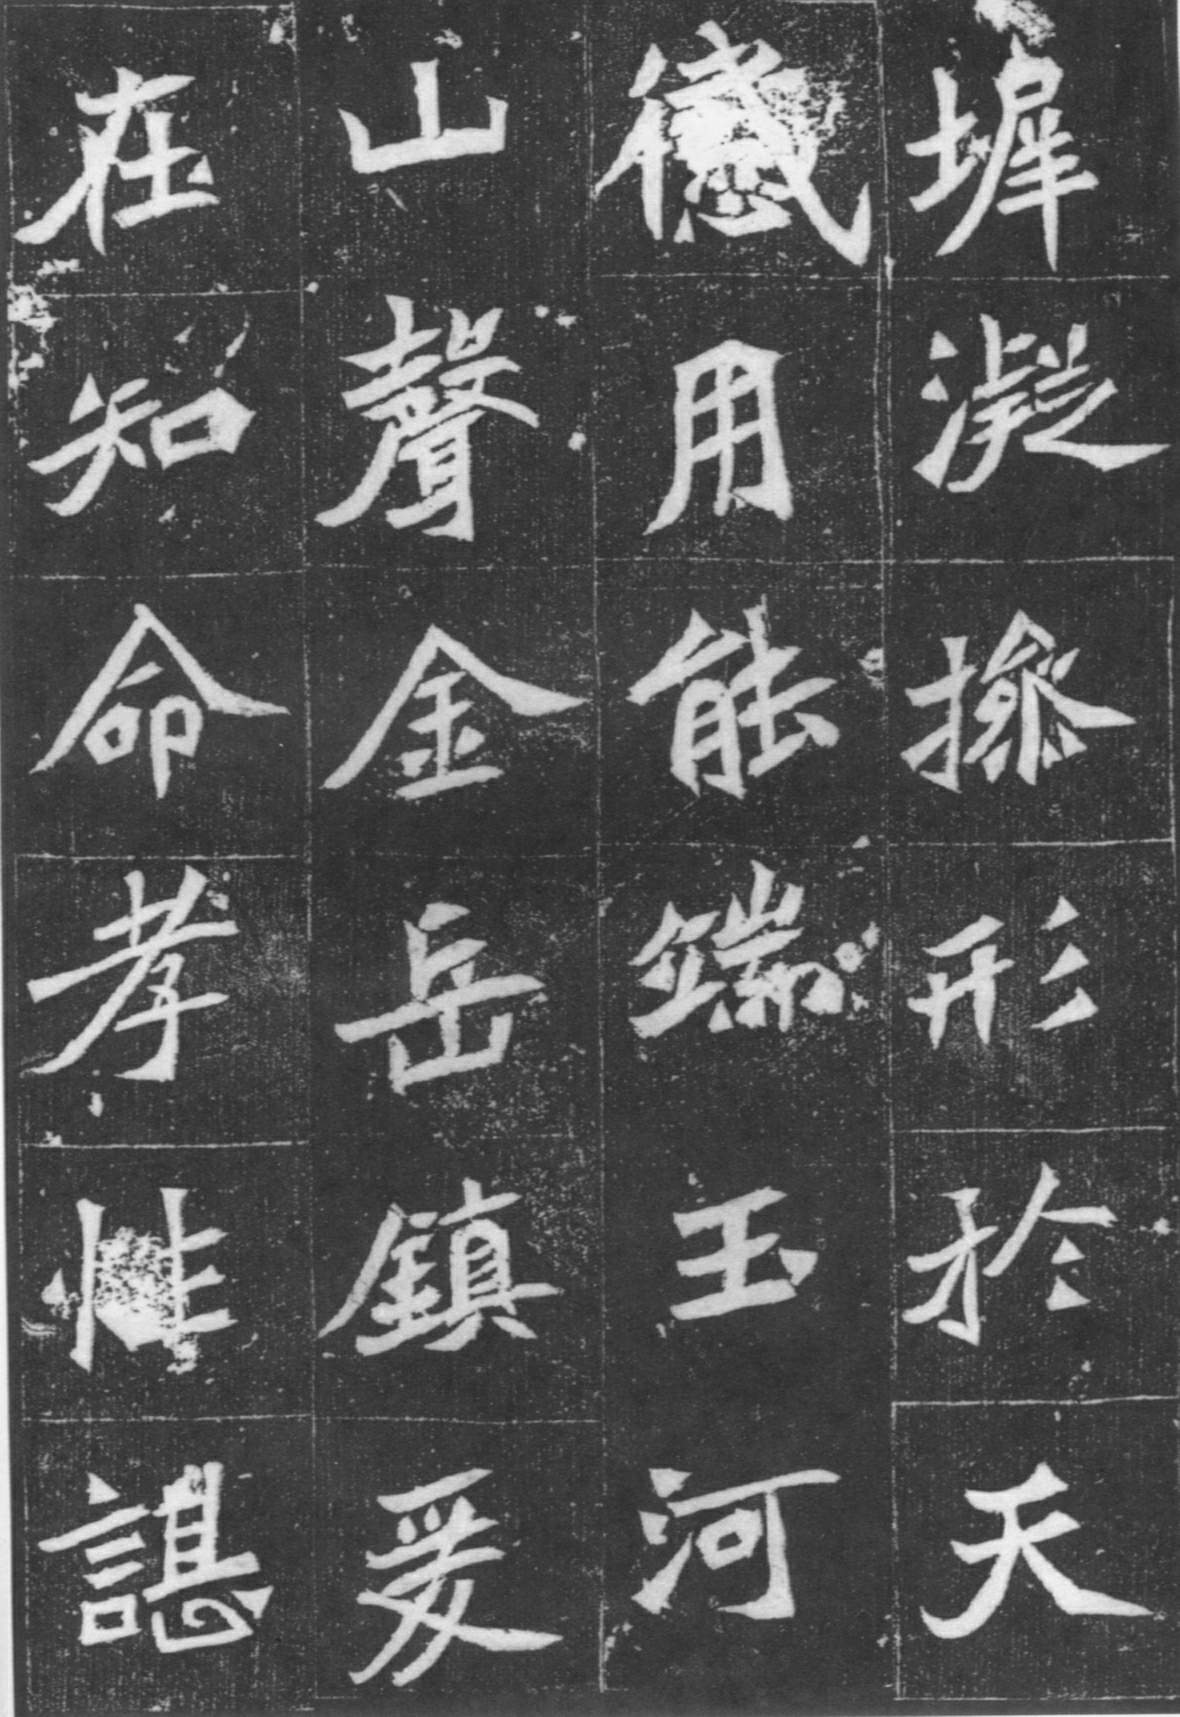 墀凝操形於天
用能端玉河
山聲金岳鎮爰
在知命孝諶